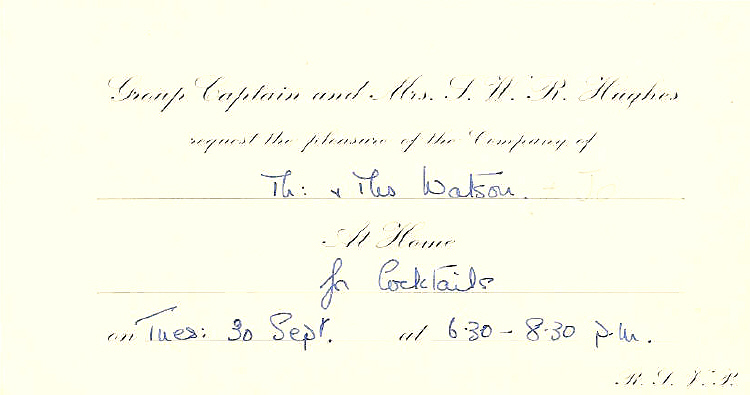 Group Captain and Mrs. S. W. R. Hughes
request the pleasure of the Company of
Mr: & Mrs Watson.
At Home
for Cocktails
on Tues: 30 Sept. at 6.30 - 8.30 p.m.
R. S. V. P.